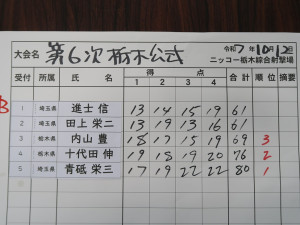 大会名 第6次栃木公式 令和7年10月12日
ニッコー栃木綜合射撃場
受付 所属 氏名 得点 合計 順位 摘要
1 2 3 4
B
1 埼玉県 進士 信 13 14 15 19 61
2 埼玉県 田上 栄二 13 19 13 16 61
3 栃木県 内山 豊 18 17 15 19 69 3
4 栃木県 十代田 伸 19 18 19 20 76 2
5 埼玉県 青砥 栄三 17 19 22 22 80 1